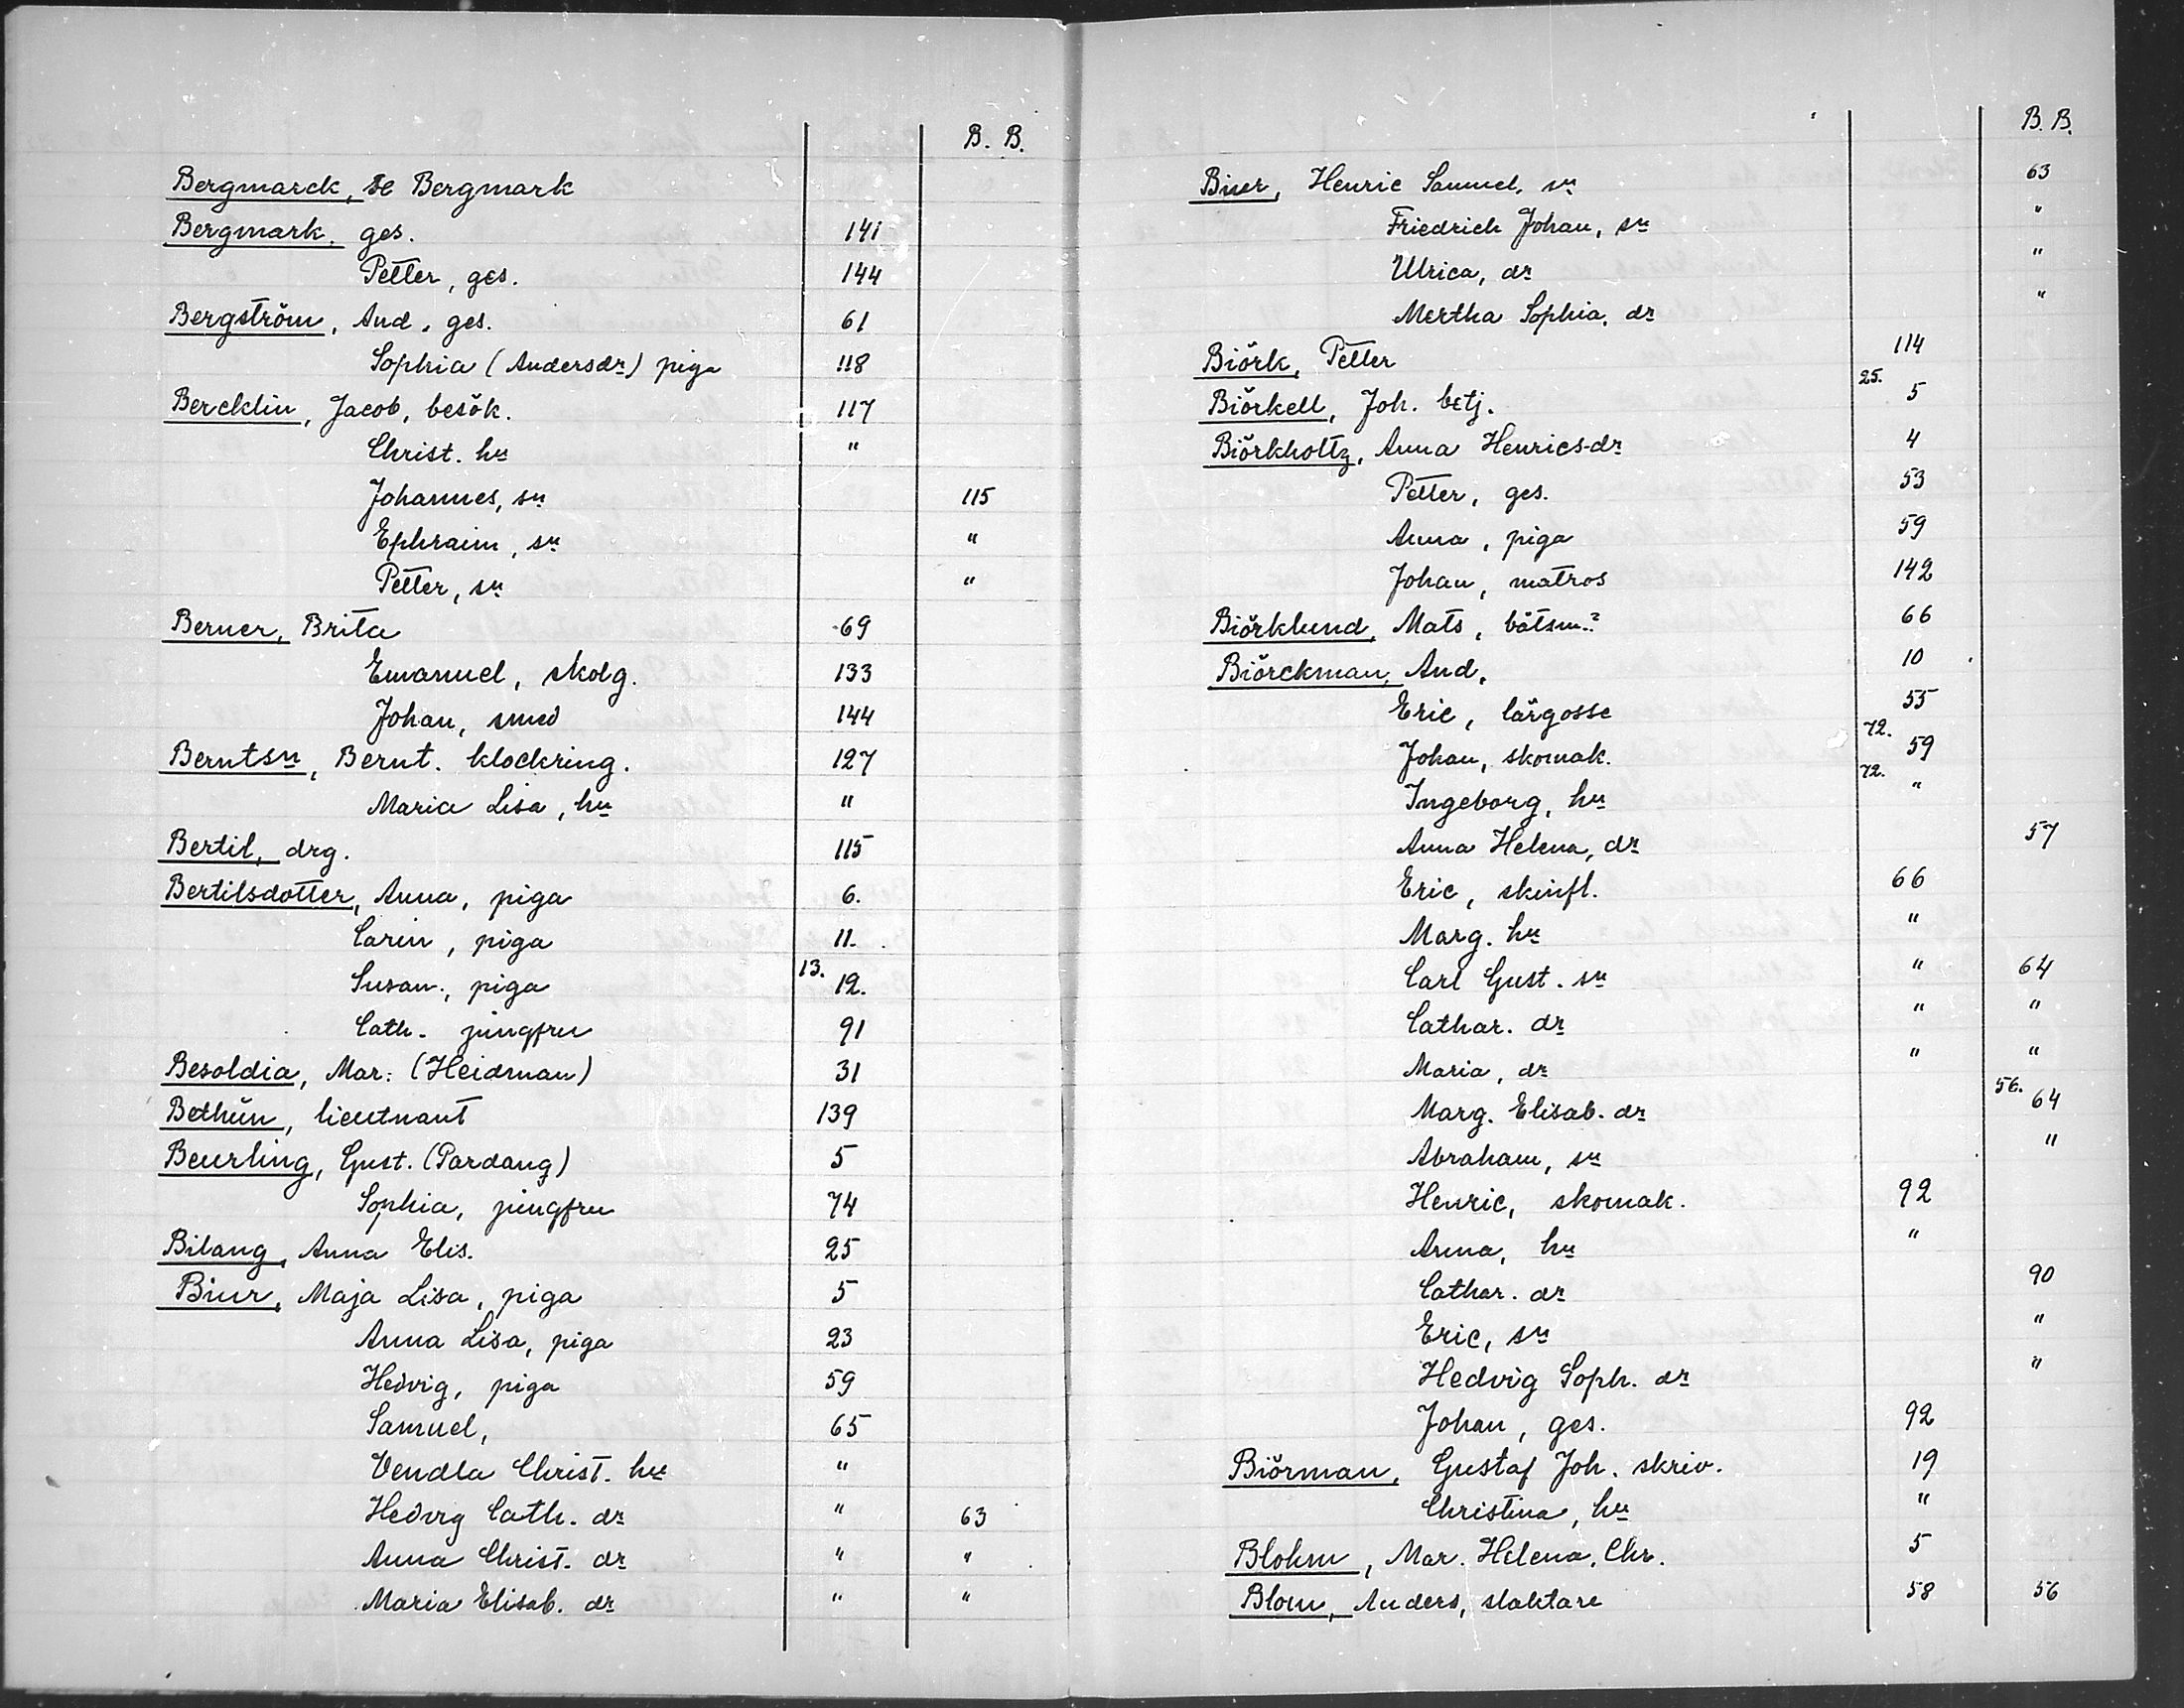 B. B.
Bergmarck, se Bergmark
Bergmark, ges. 141
Petter, ges. 144
Bergström, And. ges. 61
Sophia (Andersdr) piga 118
Bercklin, Jacob, besök. 117
Christ. hu "
Johannes, sn 115
Ephraim, sn "
Petter, sn "
Berner, Brita 69
Emanuel, skolg. 133
Johan, smed 144
Berntsn, Bernt. klockring. 127
Maria Lisa, hu "
Bertil, drg. 115
Bertilsdotter, Anna, piga 6.
Carin, piga 11.
Susan., piga 13. 12.
Cath. jungfru 91
Besoldia, Mar: (Heidman) 31
Bethün, lieutnant 139
Beurling, Gust. (Pardang) 5
Sophia, jungfru 74
Bilang, Anna Elis. 25
Biur, Maja Lisa, piga 5
Anna Lisa, piga 23
Hedvig, piga 59
Samuel, 65
Vendla Christ. hu "
Hedvig Cath. dr " 63
Anna Christ. dr " "
Maria Elisab. dr " "
B. B.
Biur, Henric Samuel, sn 63
Friedrich Johan, sn "
Ulrica, dr "
Mertha Sophia, dr "
Biörk, Petter 114
Biörkell, Joh. betj. 25. 5
Biörkholtz, Anna Henrics-dr 4
Petter, ges. 53
Anna, piga 59
Johan, matros 142
Biörklund, Mats, båtsm.? 66
Biörckman, And. 10
Eric, lärgosse 55
Johan, skomak. 72. 59
Ingeborg, hu 72. "
Anna Helena, dr 57
Eric, skinfl. 66
Marg. hu "
Carl Gust. sn " 64
Cathar. dr " "
Maria, dr " "
Marg. Elisab. dr 56. 64
Abraham, sn "
Henric, skomak. 92
Anna, hu "
Cathar. dr 90
Eric, sn "
Hedvig Soph. dr "
Johan, ges. 92
Biörman, Gustaf Joh. skriv. 19
Christina, hu "
Blohm, Mar. Helena, Chr. 5
Blom, Anders, slaktare 58 56